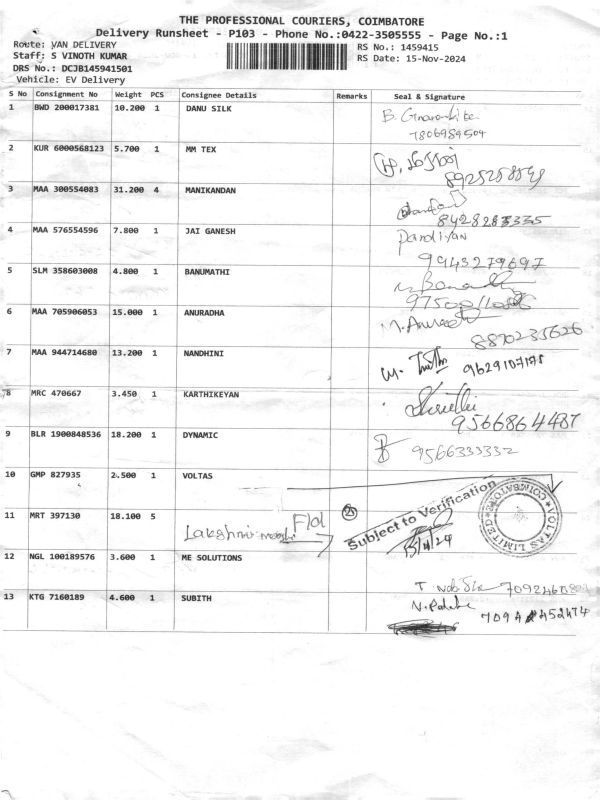 THE PROFESSIONAL COURIERS, COIMBATORE
Delivery Runsheet - P103 - Phone No.:0422-3505555 - Page No.:1
Route: VAN DELIVERY
Staff: S VINOTH KUMAR
DRS No.: DCJB145941501
Vehicle: EV Delivery
RS No.: 1459415
RS Date: 15-Nov-2024
S No Consignment No Weight PCS Consignee Details Remarks Seal & Signature
1 BWD 200017381 10.200 1 DANU SILK
7806984504
2 KUR 6000568123 5.700 1 MM TEX
3 MAA 300554083 31.200 4 MANIKANDAN
8428283335
4 MAA 576554596 7.800 1 JAI GANESH Pandiyan
9943279697
5 SLM 358603008 4.800 1 BANUMATHI
6 MAA 705906053 15.000 1 ANURADHA
8870235626
7 MAA 944714680 13.200 1 NANDHINI
8 MRC 470667 3.450 1 KARTHIKEYAN
9566864487
9 BLR 1900848536 18.200 1 DYNAMIC
9566333332
10 GMP 827935 2.500 1 VOLTAS
Subject to Verification
VOLTAS LIMITED * COIMBATORE *
11 MRT 397130 18.100 5
Lakshmi
15/11/24
12 NGL 100189576 3.600 1 ME SOLUTIONS
13 KTG 7160189 4.600 1 SUBITH